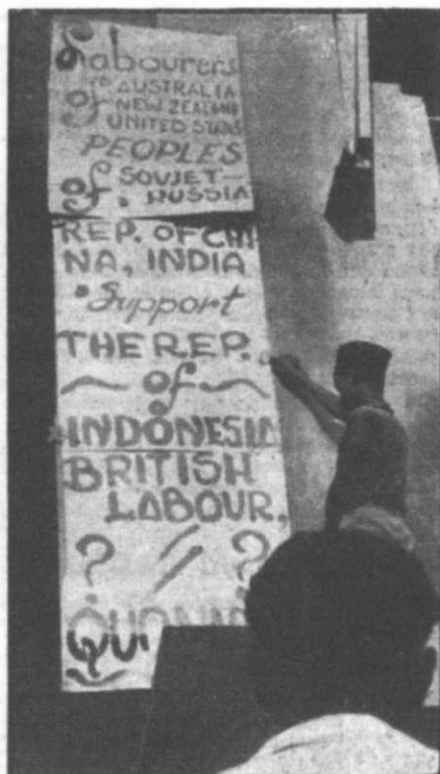 Labourers
of AUSTRALIA
NEW ZEALAND
UNITED STATES
PEOPLES
of SOVJET-
RUSSIA
REP. OF CHI-
NA, INDIA
Support
THE REP.
of
INDONESIA
BRITISH
LABOUR,
? // ?